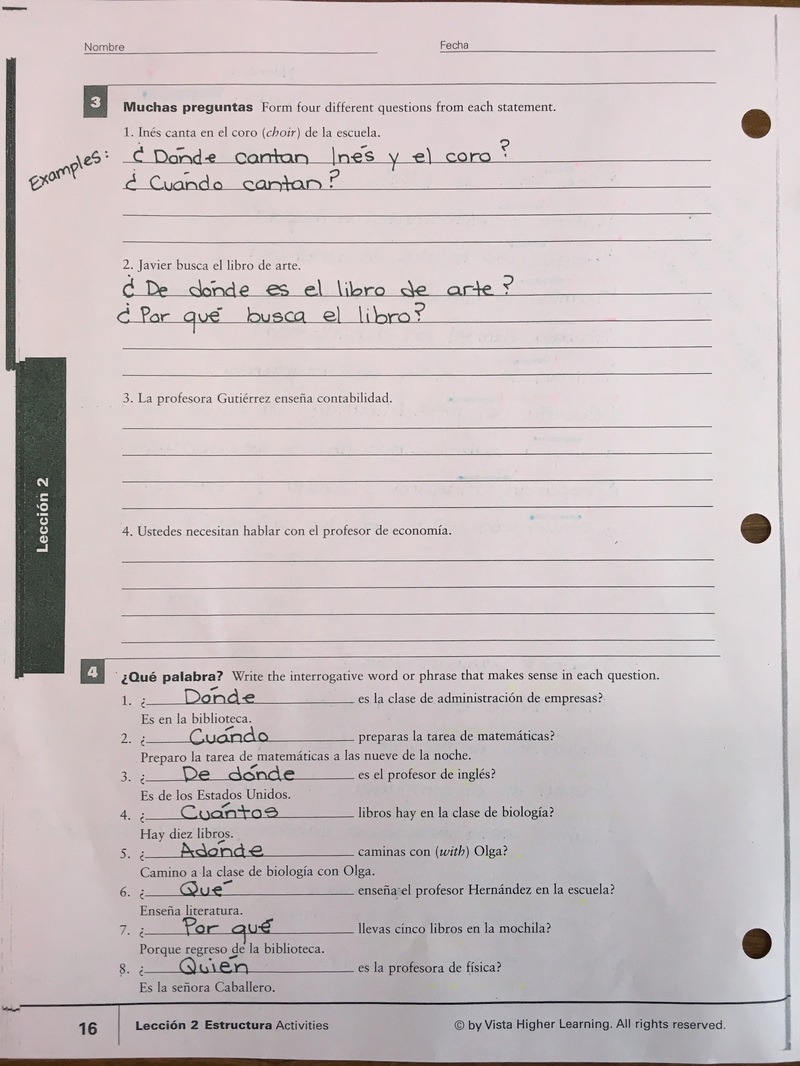 Nombre
Fecha
3 Muchas preguntas Form four different questions from each statement.
1. Inés canta en el coro (choir) de la escuela.
Examples: ¿ Dónde cantan Inés y el coro?
¿ Cuándo cantan?
2. Javier busca el libro de arte.
¿ De dónde es el libro de arte?
¿ Por qué busca el libro?
3. La profesora Gutiérrez enseña contabilidad.
4. Ustedes necesitan hablar con el profesor de economía.
Lección 2
4 ¿Qué palabra? Write the interrogative word or phrase that makes sense in each question.
1. ¿ Dónde es la clase de administración de empresas?
Es en la biblioteca.
2. ¿ Cuándo preparas la tarea de matemáticas?
Preparo la tarea de matemáticas a las nueve de la noche.
3. ¿ De dónde es el profesor de inglés?
Es de los Estados Unidos.
4. ¿ Cuántos libros hay en la clase de biología?
Hay diez libros.
5. ¿ Adónde caminas con (with) Olga?
Camino a la clase de biología con Olga.
6. ¿ Qué enseña el profesor Hernández en la escuela?
Enseña literatura.
7. ¿ Por qué llevas cinco libros en la mochila?
Porque regreso de la biblioteca.
8. ¿ Quién es la profesora de física?
Es la señora Caballero.
16 Lección 2 Estructura Activities © by Vista Higher Learning. All rights reserved.